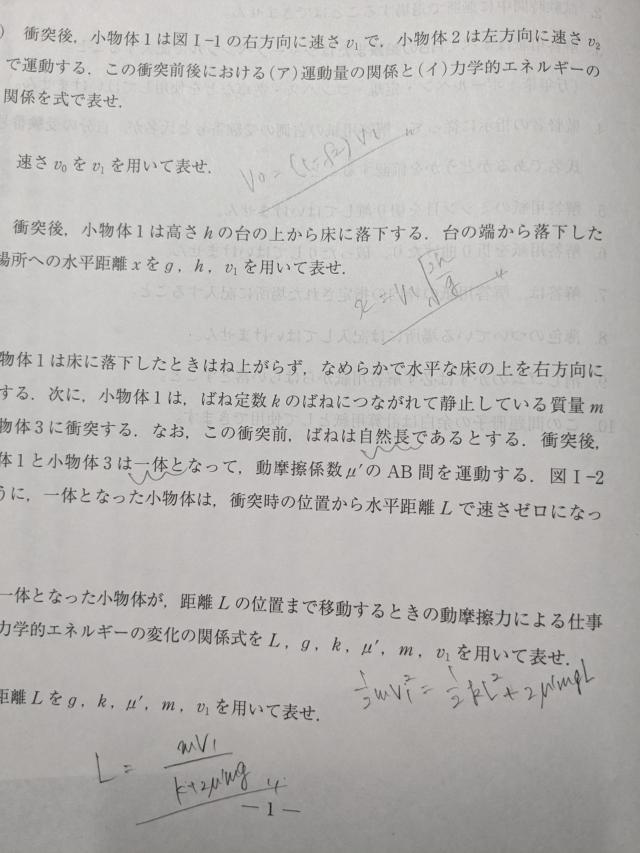 ) 衝突後，小物体1は図Ⅰ-1の右方向に速さ v₁ で，小物体2は左方向に速さ v₂
で運動する．この衝突前後における(ア)運動量の関係と(イ)力学的エネルギーの
関係を式で表せ．
速さ v₀ を v₁ を用いて表せ．
衝突後，小物体1は高さ h の台の上から床に落下する．台の端から落下した
場所への水平距離 x を g，h，v₁ を用いて表せ．
物体1は床に落下したときはね上がらず，なめらかで水平な床の上を右方向に
する．次に，小物体1は，ばね定数 k のばねにつながれて静止している質量 m
物体3に衝突する．なお，この衝突前，ばねは自然長であるとする．衝突後，
体1と小物体3は一体となって，動摩擦係数 μ′ の AB 間を運動する．図Ⅰ-2
うに，一体となった小物体は，衝突時の位置から水平距離 L で速さゼロになっ
一体となった小物体が，距離 L の位置まで移動するときの動摩擦力による仕事
力学的エネルギーの変化の関係式を L，g，k，μ′，m，v₁ を用いて表せ．
½mV₁² = ½kL² + 2μ′mgL
距離 L を g，k，μ′，m，v₁ を用いて表せ．
L = mV₁ / k+2μ′mg
— 1 —